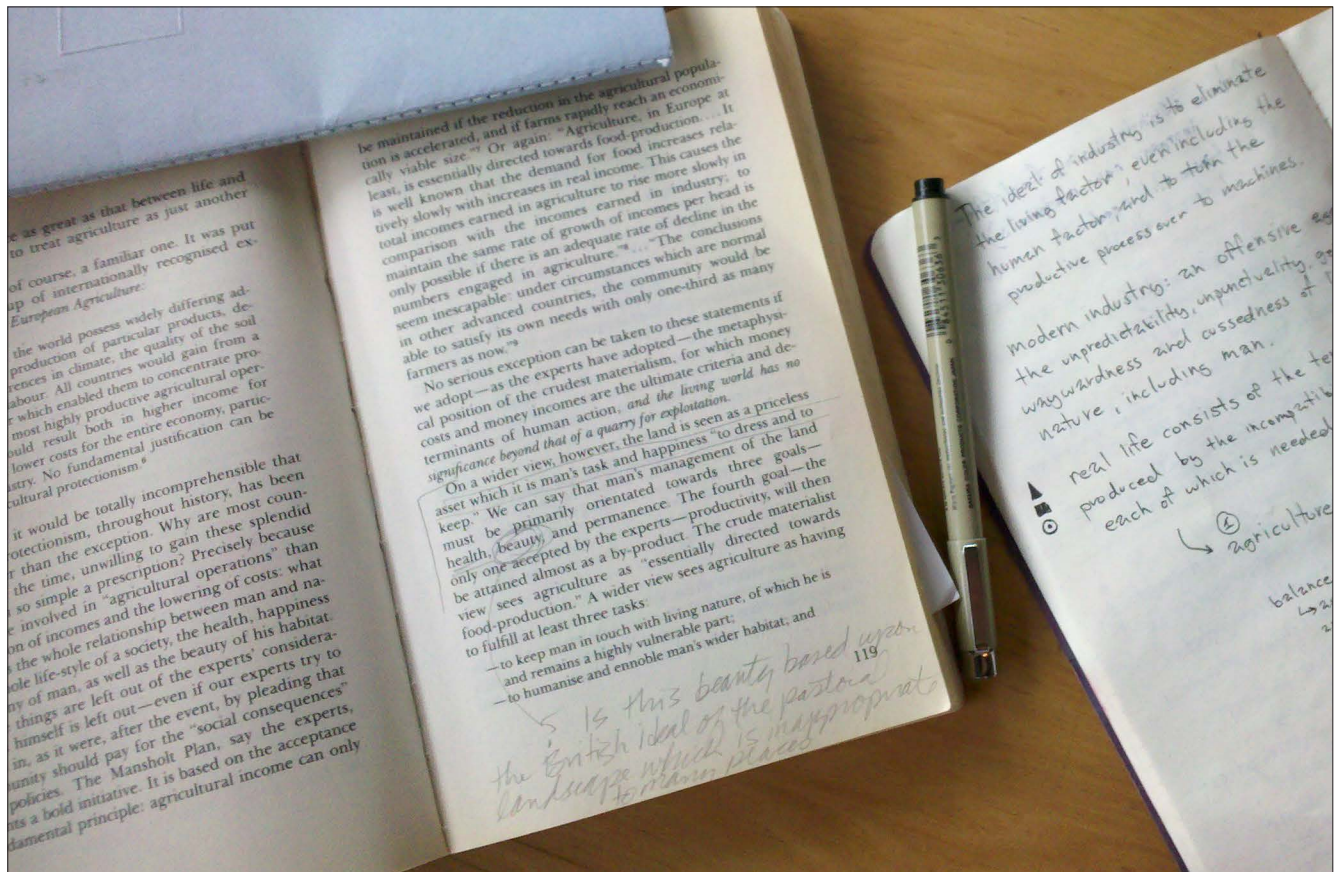 e as great as that between life and
to treat agriculture as just another
of course, a familiar one. It was put
up of internationally recognised ex-
European Agriculture:
the world possess widely differing ad-
production of particular products, de-
rences in climate, the quality of the soil
abour. All countries would gain from a
r which enabled them to concentrate pro-
most highly productive agricultural oper-
ould result both in higher income for
lower costs for the entire economy, partic-
stry. No fundamental justification can be
cultural protectionism.⁶
it would be totally incomprehensible that
otectionism, throughout history, has been
r than the exception. Why are most coun-
the time, unwilling to gain these splendid
so simple a prescription? Precisely because
e involved in “agricultural operations” than
on of incomes and the lowering of costs: what
s the whole relationship between man and na-
ole life-style of a society, the health, happiness
ny of man, as well as the beauty of his habitat.
things are left out of the experts’ considera-
himself is left out—even if our experts try to
in, as it were, after the event, by pleading that
unity should pay for the “social consequences”
policies. The Mansholt Plan, say the experts,
nts a bold initiative. It is based on the acceptance
damental principle: agricultural income can only
be maintained if the reduction in the agricultural popula-
tion is accelerated, and if farms rapidly reach an economi-
cally viable size.”⁷ Or again: “Agriculture, in Europe at
least, is essentially directed towards food-production. . . . It
is well known that the demand for food increases rela-
tively slowly with increases in real income. This causes the
total incomes earned in agriculture to rise more slowly in
comparison with the incomes earned in industry; to
maintain the same rate of growth of incomes per head is
only possible if there is an adequate rate of decline in the
numbers engaged in agriculture.”⁸ . . . “The conclusions
seem inescapable: under circumstances which are normal
in other advanced countries, the community would be
able to satisfy its own needs with only one-third as many
farmers as now.”⁹
No serious exception can be taken to these statements if
we adopt—as the experts have adopted—the metaphysi-
cal position of the crudest materialism, for which money
costs and money incomes are the ultimate criteria and de-
terminants of human action, and the living world has no
significance beyond that of a quarry for exploitation.
On a wider view, however, the land is seen as a priceless
asset which it is man’s task and happiness “to dress and to
keep.” We can say that man’s management of the land
must be primarily orientated towards three goals—
health, beauty, and permanence. The fourth goal—the
only one accepted by the experts—productivity, will then
be attained almost as a by-product. The crude materialist
view sees agriculture as “essentially directed towards
food-production.” A wider view sees agriculture as having
to fulfill at least three tasks:
—to keep man in touch with living nature, of which he is
and remains a highly vulnerable part;
—to humanise and ennoble man’s wider habitat; and
119
is this beauty based upon
the British ideal of the pastoral
landscape which is inappropriate
to many places
The ideal of industry is to eliminate
the living factor, even including the
human factor and to turn the
productive process over to machines.
modern industry: an offensive
the unpredictability, unpunctuality,
waywardness and cussedness of
nature, including man.
real life consists of the
produced by the
each of which is needed
①
agriculture
balance